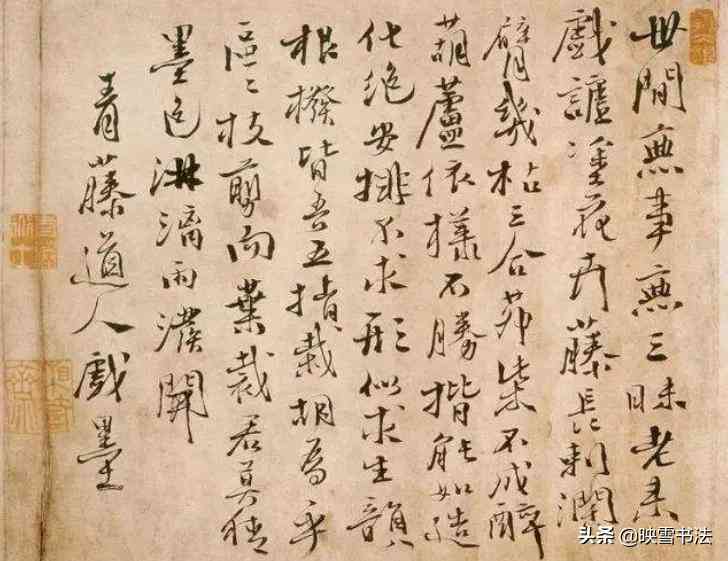 世間無事無三昧老来
戲謔塗花卉藤長刺濶
臂幾枯三合茅柴不成醉
葫蘆依樣不勝揩能如造
化絶安排不求形似求生韻
根撥皆吾五指栽胡為乎
區〻枝剪而葉裁君莫猜
墨色淋漓雨潑開
青藤道人戲墨
头条 @映雪书法